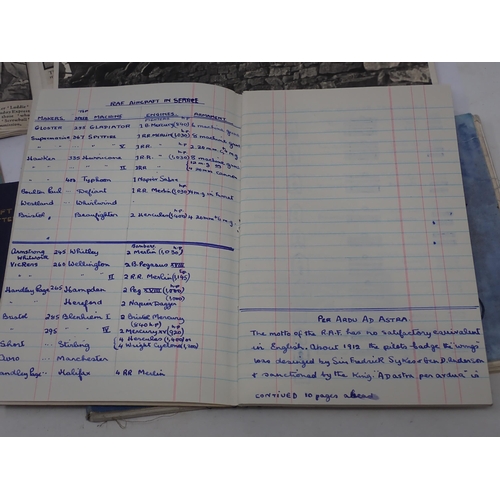 RAF AIRCRAFT IN SERVICE
MAKERS MACHINE ENGINES ARMAMENT
GLOSTER 255 GLADIATOR 1 B.Mercury (840) 4 machine guns
Supermarine 367 SPITFIRE 1 RR Merlin (1,030) 8 machine guns
" " " V 1 RR
Hawker 335 Hurricane 1 R.R. " (1,030) 8 machine guns
" " " II 1 RR
" 400 Typhoon 1 Napier Sabre
Boulton Paul - Defiant 1 RR. Merlin (1,030) 4 m.g in turret
Westland - Whirlwind
Bristol Beaufighter 2 Hercules (1,400) 4 20mm
Bombers
Armstrong Whitworth 245 Whitley 2 Merlin (1,030)
Vickers 260 Wellington 2 B.Pegasus XVIII
" " " II 2 R.R. Merlin (1,145)
Handley Page 265 Hampden 2 Peg XVIII (1,000)
" Hereford 2 Napier Dagger (1,000)
Bristol 285 Blenheim I 2 Bristol Mercury (840 h.p)
" 295 " IV 2 Mercury XV (920)
Short Stirling 4 Hercules (1,400)
4 Wright Cyclone (1,200)
Avro Manchester
Handley Page Halifax 4 RR Merlin
PER ARDU AD ASTRA
The motto of the R.A.F. has no satisfactory equivalent
in English. About 1912 the pilots badge the wings
was desined by Sir Fredrick Sykes & Gen D. Henderson
& sanctioned by the King. "AD astra per ardua" is
CONTINED 10 pages ahead